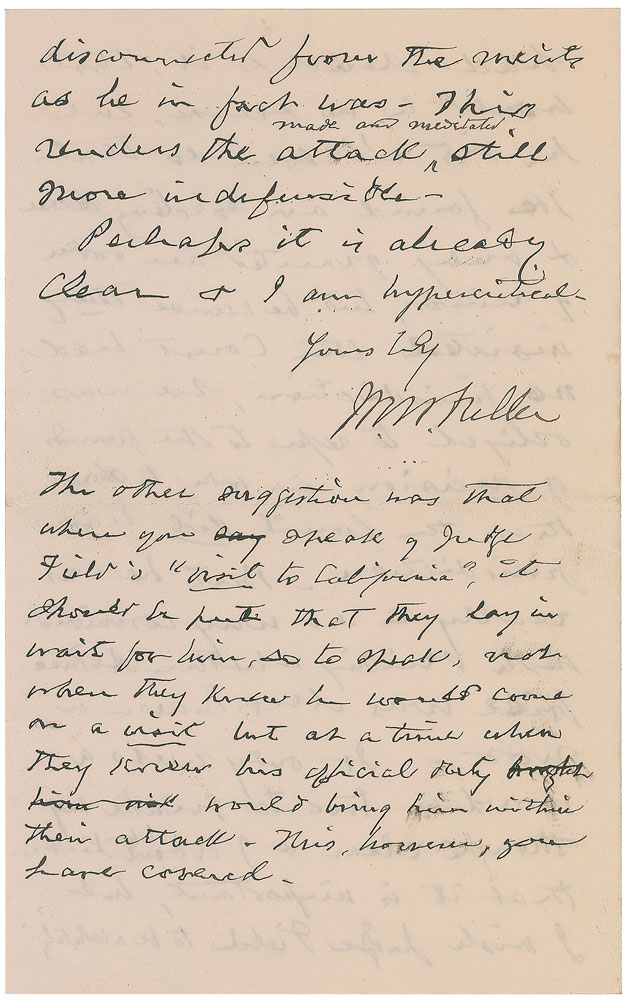 disconnected from the merits
as he in fact was - This
made and meditated
renders the attack ^ still
more indefensible -
Perhaps it is already
clear & I am hypercritical -
Yours
MW Fuller
The other suggestion was that
where you say speak of Judge
Field's "visit to California", it
should be put that they lay in
wait for him, so to speak, not
when they knew he would come
on a visit but at a time when
they knew his official duty brought
him would bring him within
their attack - This, however, you
have covered -